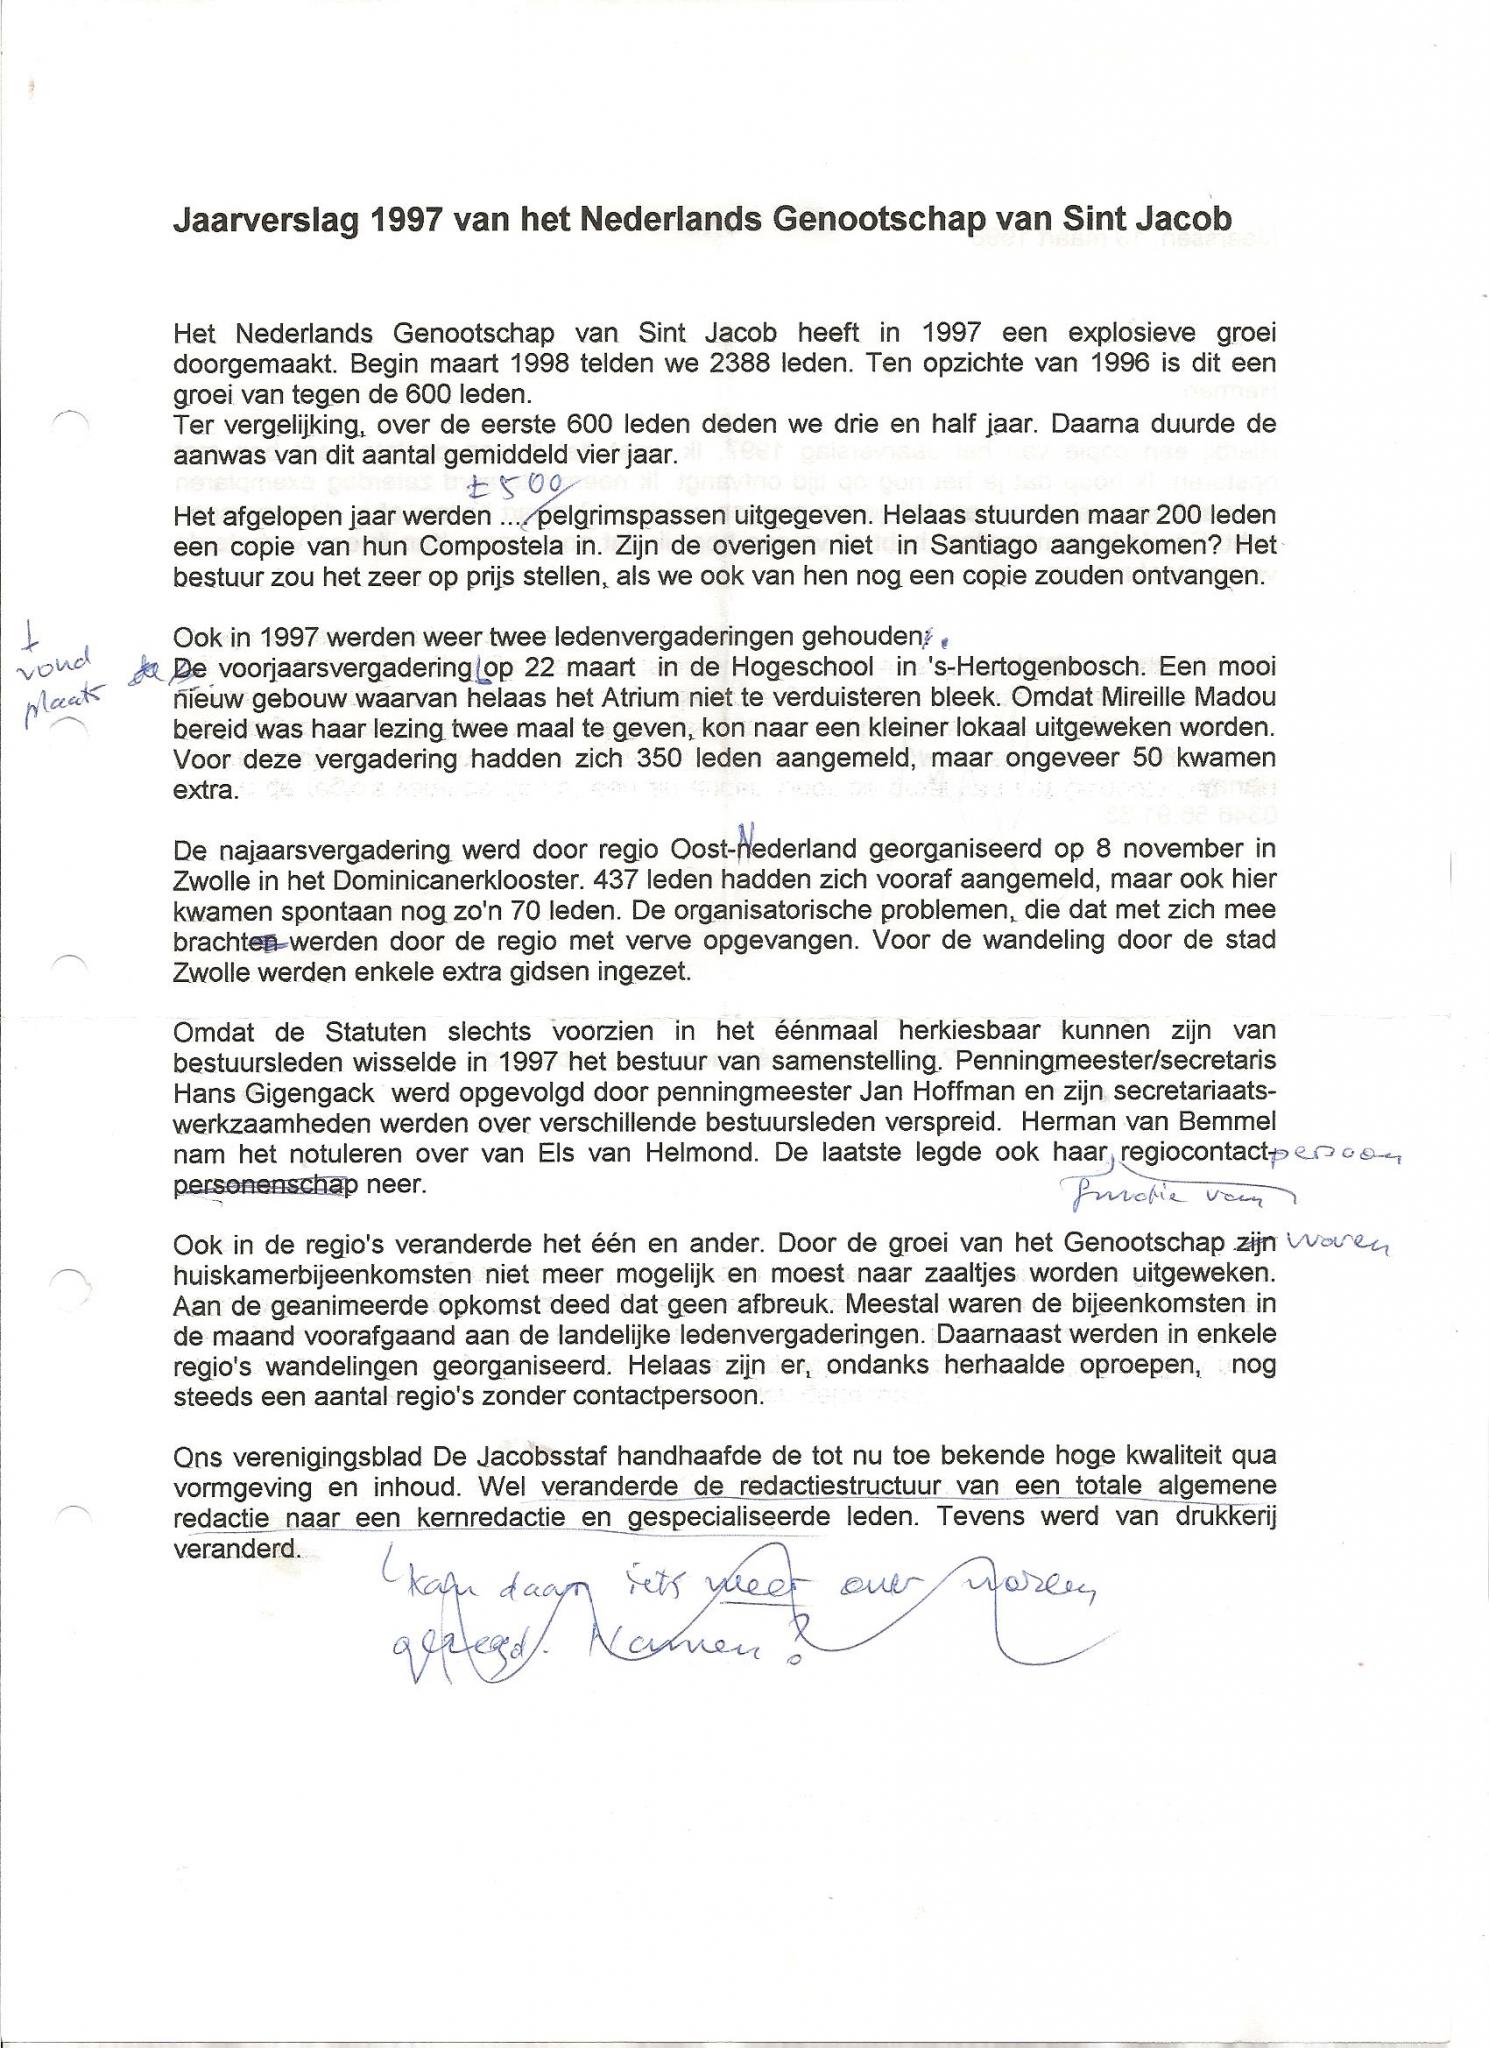 Jaarverslag 1997 van het Nederlands Genootschap van Sint Jacob
Het Nederlands Genootschap van Sint Jacob heeft in 1997 een explosieve groei
doorgemaakt. Begin maart 1998 telden we 2388 leden. Ten opzichte van 1996 is dit een
groei van tegen de 600 leden.
Ter vergelijking, over de eerste 600 leden deden we drie en half jaar. Daarna duurde de
aanwas van dit aantal gemiddeld vier jaar.
± 500
Het afgelopen jaar werden .... pelgrimspassen uitgegeven. Helaas stuurden maar 200 leden
een copie van hun Compostela in. Zijn de overigen niet in Santiago aangekomen? Het
bestuur zou het zeer op prijs stellen, als we ook van hen nog een copie zouden ontvangen.
Ook in 1997 werden weer twee ledenvergaderingen gehouden.
vond
plaats
De voorjaarsvergadering op 22 maart in de Hogeschool in 's-Hertogenbosch. Een mooi
nieuw gebouw waarvan helaas het Atrium niet te verduisteren bleek. Omdat Mireille Madou
bereid was haar lezing twee maal te geven, kon naar een kleiner lokaal uitgeweken worden.
Voor deze vergadering hadden zich 350 leden aangemeld, maar ongeveer 50 kwamen
extra.
De najaarsvergadering werd door regio Oost-Nederland georganiseerd op 8 november in
Zwolle in het Dominicanerklooster. 437 leden hadden zich vooraf aangemeld, maar ook hier
kwamen spontaan nog zo'n 70 leden. De organisatorische problemen, die dat met zich mee
brachten werden door de regio met verve opgevangen. Voor de wandeling door de stad
Zwolle werden enkele extra gidsen ingezet.
Omdat de Statuten slechts voorzien in het éénmaal herkiesbaar kunnen zijn van
bestuursleden wisselde in 1997 het bestuur van samenstelling. Penningmeester/secretaris
Hans Gigengack werd opgevolgd door penningmeester Jan Hoffman en zijn secretariaats-
werkzaamheden werden over verschillende bestuursleden verspreid. Herman van Bemmel
nam het notuleren over van Els van Helmond. De laatste legde ook haar regiocontact-persoon
personenschap neer.
functie van
Ook in de regio's veranderde het één en ander. Door de groei van het Genootschap zijn waren
huiskamerbijeenkomsten niet meer mogelijk en moest naar zaaltjes worden uitgeweken.
Aan de geanimeerde opkomst deed dat geen afbreuk. Meestal waren de bijeenkomsten in
de maand voorafgaand aan de landelijke ledenvergaderingen. Daarnaast werden in enkele
regio's wandelingen georganiseerd. Helaas zijn er, ondanks herhaalde oproepen, nog
steeds een aantal regio's zonder contactpersoon.
Ons verenigingsblad De Jacobsstaf handhaafde de tot nu toe bekende hoge kwaliteit qua
vormgeving en inhoud. Wel veranderde de redactiestructuur van een totale algemene
redactie naar een kernredactie en gespecialiseerde leden. Tevens werd van drukkerij
veranderd.
kan daar iets meer over worden
gezegd. Namen?